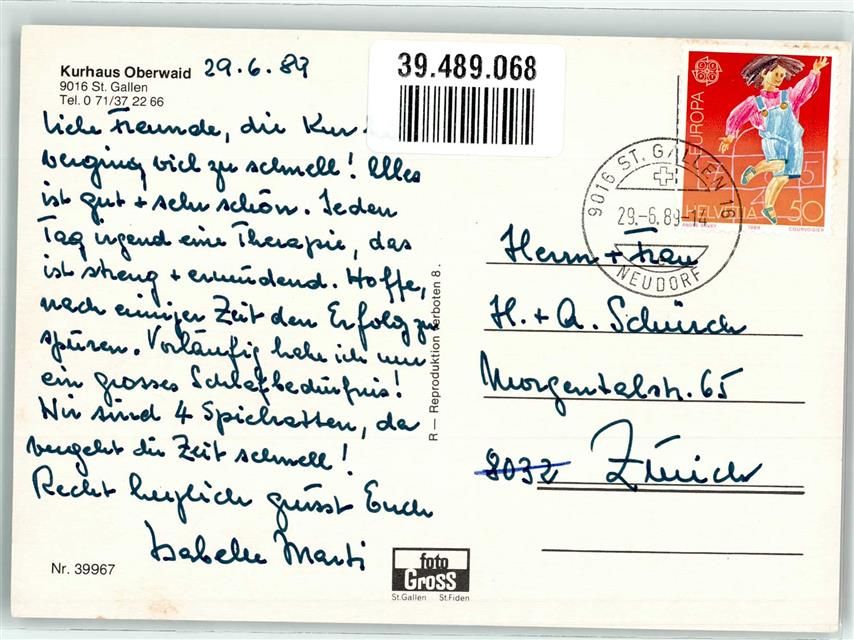 Kurhaus Oberwaid
9016 St. Gallen
Tel. 0 71/37 22 66
29.6.89
Liebe Freunde, die Kur
verging viel zu schnell! Alles
ist gut + sehr schön. Jeden
Tag irgend eine Therapie, das
ist streng + ermüdend. Hoffe,
nach einiger Zeit den Erfolg zu
spüren. Vorläufig habe ich nur
ein grosses Schlafbedürfnis!
Wir sind 4 Spielratten, da
vergeht die Zeit schnell!
Recht herzlich grüsst Euch
Isabelle Marti
Nr. 39967
foto
Gross
St.Gallen St.Fiden
R — Reproduktion verboten 8.
39.489.068
EUROPA
HELVETIA 50
1989 COURVOISIER
9016 ST. GALLEN 16
29.-6.89-14
NEUDORF
Herrn + Frau
H. + A. Schürch
Morgentalstr. 65
8032 Zürich